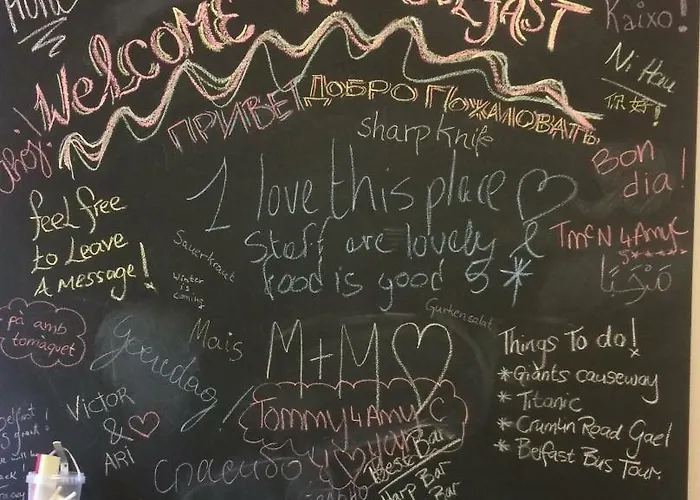 Kaixo!
WELCOME TO BELFAST
Ni Hau
你好!
Ahoj!
ПРИВЕТ ДОБРО ПОЖАЛОВАТЬ
sharp knife
Bon
dia!
I love this place
Staff are lovely &
food is good 5*
feel free
to Leave
A Message!
Sauerkraut
Winter
is
coming
TMcN 4 Amy C
5*****
مرحبا
Gurkensalat
pà amb
tomàquet
Goeiedag!
Mais
M+M
Things To do!
*Giants causeway
* Titanic
* Crumlin Road Gael
* Belfast Bus Tour.
VICTOR
&
ARI
Tommy 4 Amy C
Спасибо
Beste Bar
Harp Bar
Bar
Belfast!